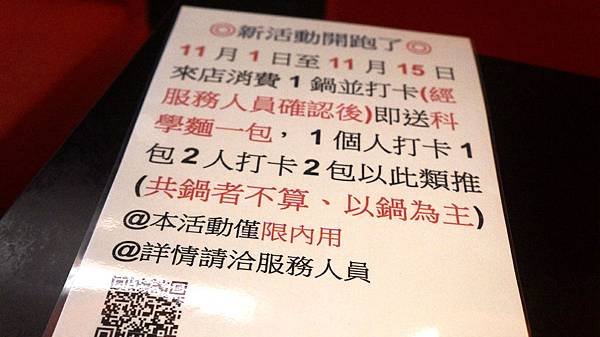 ◎新活動開跑了◎
11月1日至11月15日
來店消費1鍋並打卡(經
服務人員確認後)即送科
學麵一包，1個人打卡1
包2人打卡2包以此類推
(共鍋者不算、以鍋為主)
@本活動僅限內用
@詳情請洽服務人員